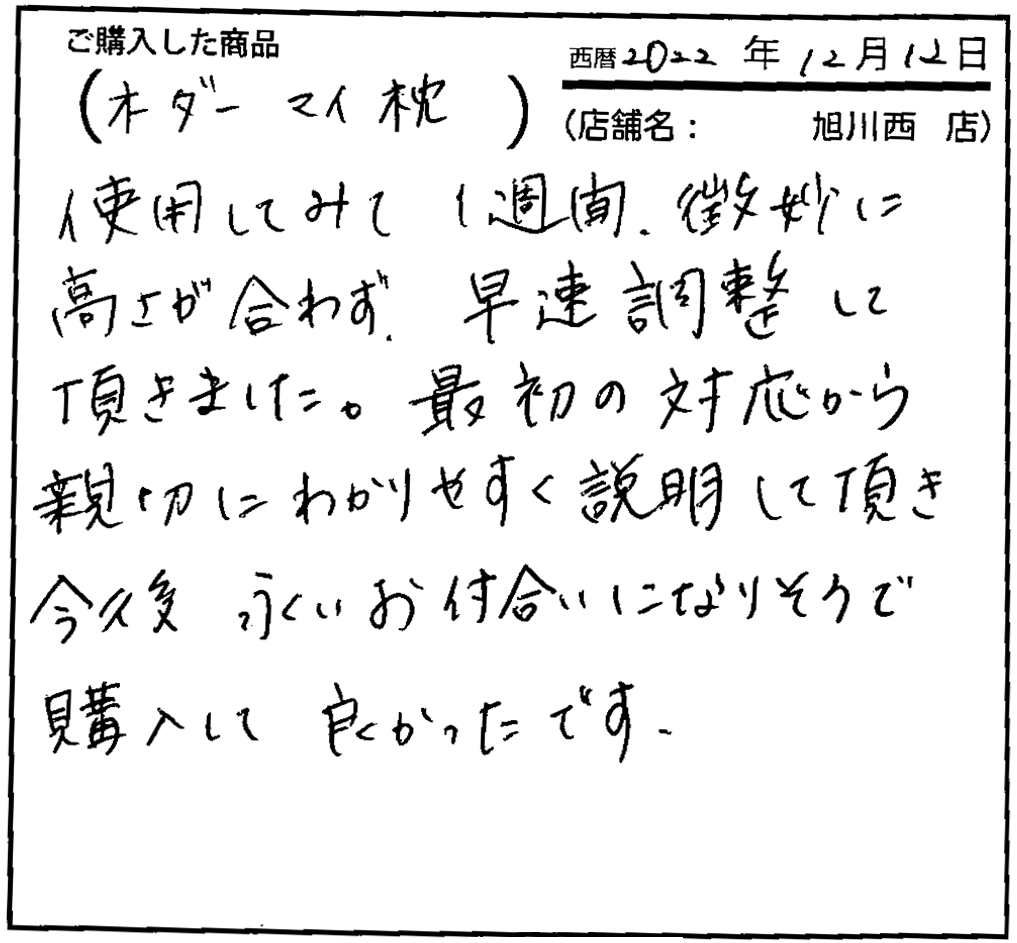 ご購入した商品
西暦2022年12月12日
(オーダー マイ枕)
(店舗名: 旭川西 店)
使用してみて 1週間. 微妙に
高さが合わず. 早速調整して
頂きました。最初の対応から
親切にわかりやすく説明して頂き
今後 永くいお付合いになりそうで
購入して 良かったです.